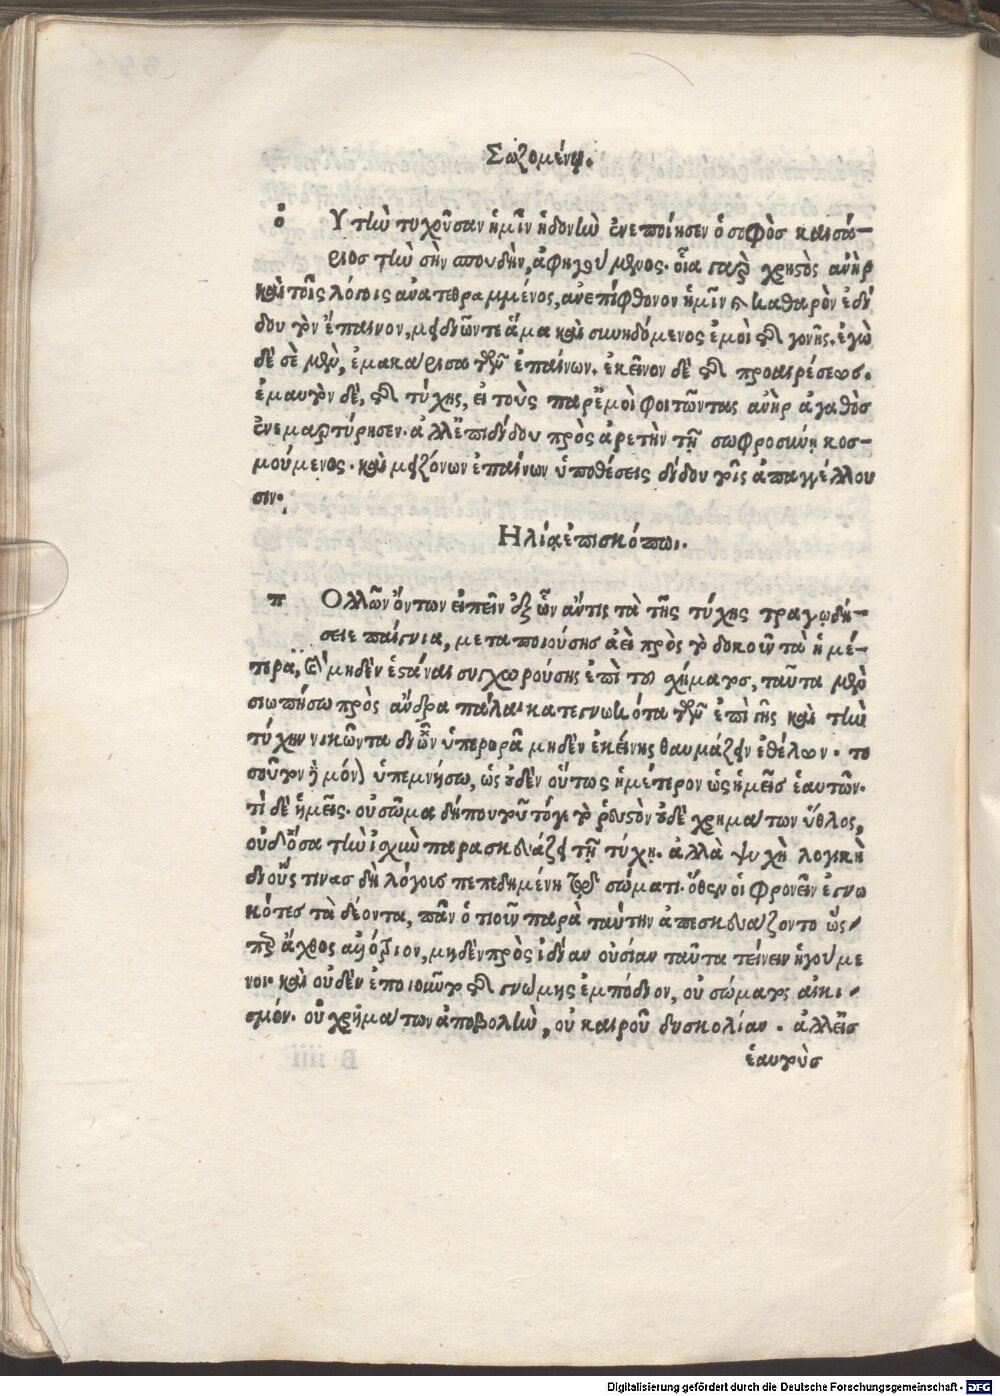 Σωζομένῳ.
ὁ Υ τὴν τυχοῦσαν ἡμῖν ἡδονὴν ἐνεποίησεν ὁ σοφὸς καισά-
ριος τὴν σὴν σπουδὴν, ἀφηγούμενος. οἷα γὰρ χρηστὸς ἀνὴρ
καὶ τοῖς λόγοις ἀνατεθραμμένος, ἀνεπίφθονον ἡμῖν καὶ καθαρὸν ἐδί
δου τὸν ἔπαινον, μειδιῶν τε ἅμα καὶ συνηδόμενος ἐμοὶ τῆς γονῆς. ἐγὼ
δὲ σὲ μὲν, ἐμακάρισα τῶν ἐπαίνων. ἐκεῖνον δὲ τῆς προαιρέσεως.
ἐμαυτὸν δὲ, τῆς τύχης, εἰ τοὺς παρ' ἐμοὶ φοιτῶντας ἀνὴρ ἀγαθὸς
ἐνεμαρτύρησεν. ἀλλ' ἐπιδίδου πρὸς ἀρετὴν τῇ σωφροσύνῃ κοσ-
μούμενος. καὶ μειζόνων ἐπαίνων ὑποθέσεις δίδου τοῖς ἀπαγγέλλου
σιν.
Ηλίᾳ ἐπισκόπῳ.
π Ολλῶν ὄντων εἰπεῖν ἐξ ὧν ἄν τις τὰ τῆς τύχης τραγῳδή-
σειε παίγνια, μεταποιούσης ἀεὶ πρὸς τὸ δοκοῦν τὰ ἡμέ-
τερα, καὶ μηδὲν ἑστάναι συγχωρούσης ἐπὶ τοῦ σχήματος, ταῦτα μὲν
σιωπήσω πρὸς ἄνδρα πάλαι κατεγνωκότα τῶν ἐπὶ γῆς καὶ τὴν
τύχην νικῶντα δι' ὧν ὑπερορᾷ μηδὲν ἐκείνης θαυμάζειν ἐθέλων. το
σοῦτον ἢ μόνον ὑπεμνήσω, ὡς οὐδὲν οὕτως ἡμέτερον ὡς ἡμεῖς ἑαυτῶν.
τί δὲ ἡμεῖς. οὐ σῶμα δήπου τοῦτό γε τὸ ῥευστὸν οὐδὲ χρημάτων ὕθλος,
οὐδ' ὅσα τὴν ἰσχὺν παρασκευάζει τῇ τύχῃ. ἀλλὰ ψυχὴ λογικὴ
δι' οὕς τινας δὴ λόγους πεπεδημένη τῷδε σώματι. ὅθεν οἱ φρονεῖν ἐγνω
κότες τὰ δέοντα, πᾶν ὁτιοῦν παρὰ ταύτην ἀπεσκευάζοντο ὥσ
περ ἄχθος ἀνόξιον, μηδὲν πρὸς ἰδίαν οὐσίαν ταῦτα τείνειν ἡγούμε
νοι. καὶ οὐδὲν ἐποιοῦντο τῆς γνώμης ἐμπόδιον, οὐ σώματος αἰκι
σμόν. οὐ χρημάτων ἀποβολὴν, οὐ καιροῦ δυσκολίαν. ἀλλ' εἰς
ἑαυτοὺς
Digitalisierung gefördert durch die Deutsche Forschungsgemeinschaft - DFG